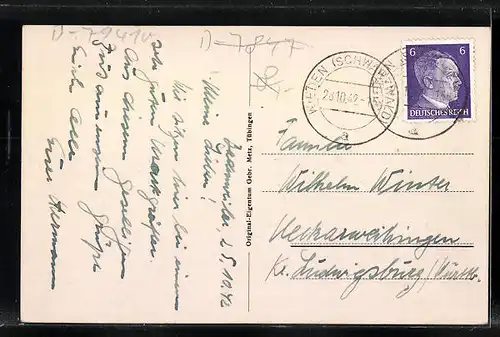 D-79410
D-7847
Badenweiler, 25.10.42
Meine Lieben!
Wir sitzen hier bei einem
sehr guten Markgräfler.
Aus diesem geselligen
Euch alle
Euer Hermann
Original-Eigentum Gebr. Metz, Tübingen
(SCHWARZWALD)
26.10.42
a
a
6 6
DEUTSCHES REICH
Familie
Wilhelm Winter
Neckarweihingen
Kr. Ludwigsburg/Württ.